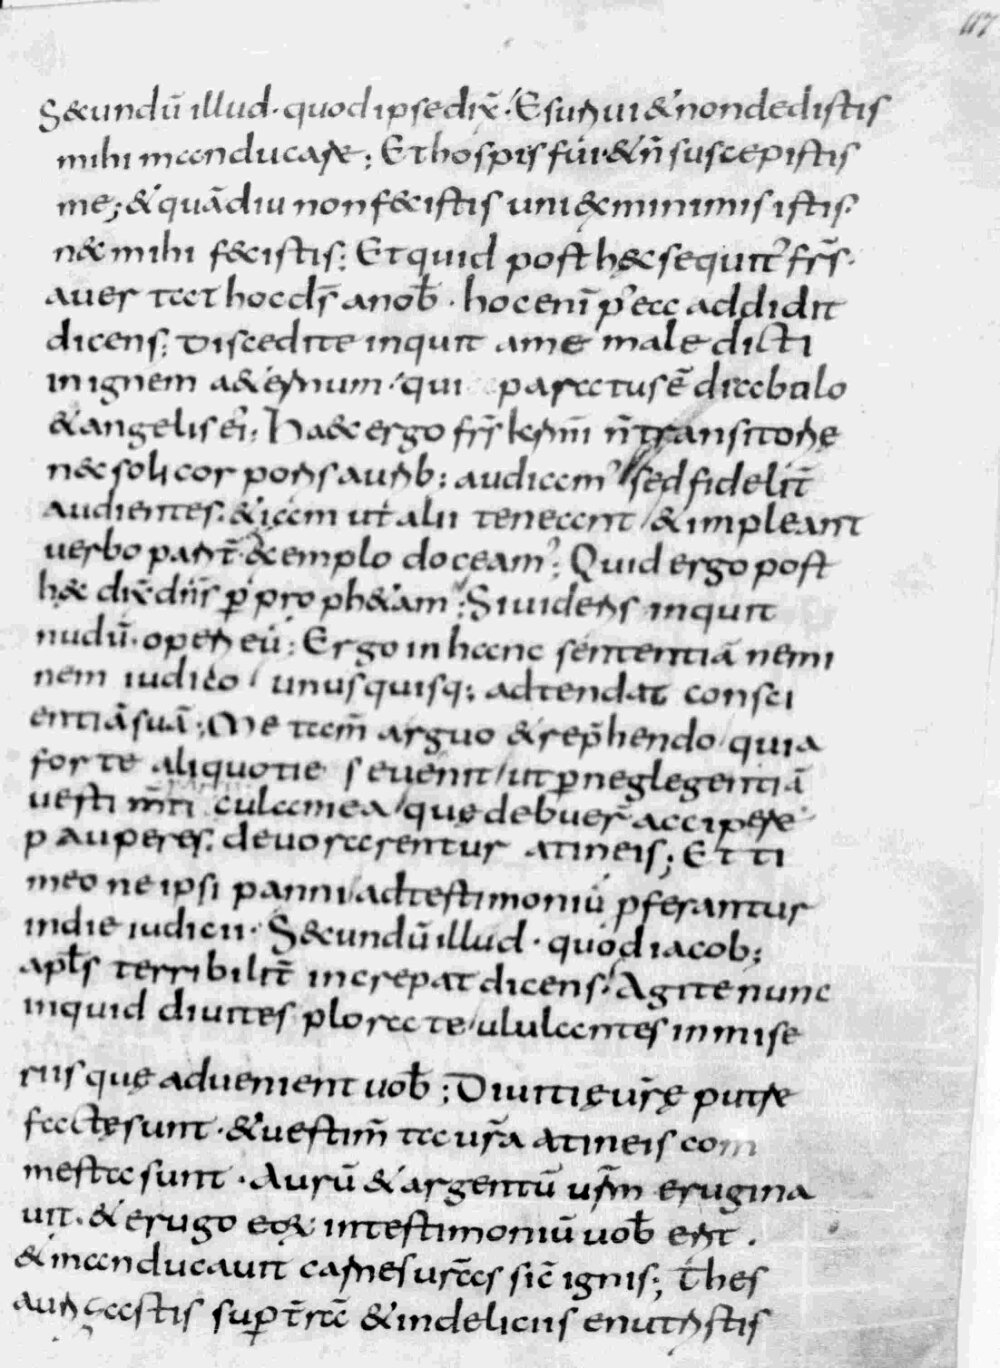 117
S&undū illud· quod ipse dix̄· Esuriui & non dedistis
mihi manducare; Et hospis fui· & n̄ suscepistis
me; & quādiu non fecistis uni ęx minimis istis·
n& mihi fecistis; Et quid post hęc sequit᾽ fr̄s·
auertat hoc ds̄ a nob̄· hoc enī p᾽ea addidit
dicens; Discedite inquit a me maledicti
in ignem a&ernum· qui paratus ē diabulo
& angelis ei᾽; Ha&c ergo fr̄s kr̄mī n̄ transitorię
n&c soli corporis aurib; audiam᾽ sed fidelit̄
audientes· & iam ut alii teneant & impleant
uerbo parit̄· & exemplo doceam᾽; Quid ergo post
hęc dix̄ dn̄s p̱ proph&am; Si uideris inquit
nudū· operi eū; Ergo in hanc sententiā nemi
nem iudico unusquisq; adtendat consci
entiā suā; Me tam̄ arguo & repr̄hendo quia
forte aliquotie s euenit ut p̱ neglegentiā
uestim̄ti cula mea quę debuer̄ accipere
pauperes· deuorarentur a tineis; Et ti
meo ne ipsi panni ad testimoniū pferantur
in die iudicii· S&undū illud· quod iacob;
apl̄s terribilit̄ increpat dicens· Agite nunc
inquid diuites plorate ululantes in mise
riis quę aduenient uob̄; Diuitię ur̄ę putre
factę sunt· & uestim̄ta ur̄a a tineis com
mesta sunt· Aurū & argentū ur̄m erugina
uit· & erugo eoꝝ in testimoniū uob̄ erit·
& manducauit carnes ur̄as sic̄ ignis; Thes
aurizastis sup̱ t̄rā & in deliciis enutristis